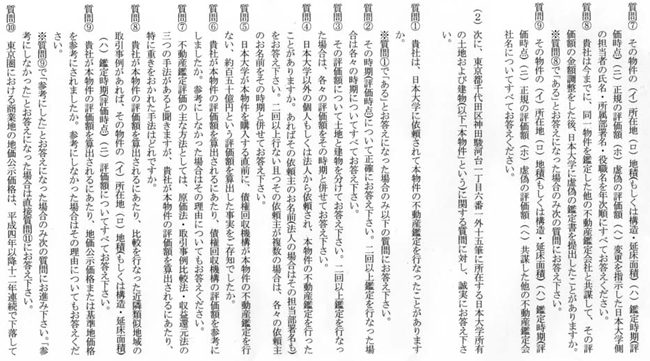 質問⑦　その物件の（イ）所在地（ロ）地積（もしくは構造・延床面積）（ハ）鑑定時期（評
価時点）（ニ）正規の評価額（ホ）虚偽の評価額（ヘ）変更を指示した日本大学側
の担当者の氏名・所属部署名・役職名を年次順にすべてお答え下さい。
質問⑧　貴社は今までに、同一物件を鑑定した他の不動産鑑定会社と共謀して、その評
価額の金額調整をした後、日本大学に虚偽の鑑定書を提出したことがありますか。
※質問⑧で「ある」とお答えになった場合のみ次の質問にお答え下さい。
質問⑨　その物件の（イ）所在地（ロ）地積（もしくは構造・延床面積）（ハ）鑑定時期（評
価時点）（ニ）正規の評価額（ホ）虚偽の評価額（ヘ）共謀した他の不動産鑑定会
社名についてすべてお答え下さい。
（２）次に、東京都千代田区神田駿河台二丁目六番一外十五筆に所在する日本大学所有
の土地および建物（以下「本物件」という）に関する質問に対し、誠実にお答え下さ
い。
質問①　貴社は、日本大学に依頼されて本物件の不動産鑑定を行なったことがあります
か。
※質問①で「ある」とお答えになった場合のみ以下の質問にお答え下さい。
質問②　その時期（評価時点）について正確にお答え下さい。二回以上鑑定を行なった場
合は各々の時期についてすべてお答え下さい。
質問③　その評価額について土地と建物を分けてお答え下さい。二回以上鑑定を行なっ
た場合は、各々の評価額をその時期と併せてお答え下さい。
質問④　日本大学以外の個人もしくは法人から依頼され、本物件の不動産鑑定を行った
ことがありますか、あればその依頼主のお名前（法人の場合はその担当部署名も）
をお答え下さい。二回以上行ない且つその依頼主が複数の場合は、各々の依頼主
のお名前をその時期と併せてお答え下さい。
質問⑤　日本大学が本物件を購入する直前に、債権回収機構が本物件の不動産鑑定を行
ない、約百五十億円という評価額を算出した事実をご存知でしたか。
質問⑥　貴社が本物件の評価額を算出されるにあたり、債権回収機構の評価額を参考に
しましたか。参考にしなかった場合はその理由についてもお答えください。
質問⑦　不動産鑑定評価の主な方法としては、原価法・取引事例比較法・収益還元法の
三つの手法があると聞きますが、貴社が本物件の評価額を算出されるにあたり、
特に重きをおかれた手法はどれですか。
質問⑧　貴社が本物件の評価額を算出されるにあたり、比較を行なった近隣類似地域の
取引事例があれば、その物件の（イ）所在地（ロ）地積（もしくは構造・延床面積）
（ハ）鑑定時期（評価時点）（ニ）評価額についてすべてお答え下さい。
質問⑨　貴社が本物件の評価額を算出されるにあたり、地価公示価格または基準地価格
を参考にされましたか。参考にしなかった場合はその理由についてもお答えくだ
さい。
※質問⑨で「参考にした」とお答えになった場合のみ次の質問にお進み下さい。「参
考にしなかった」とお答えになった場合は直接質問⑪にお答え下さい。
質問⑩　東京圏における商業地の地価公示価格は、平成四年以降十二年連続で下落して